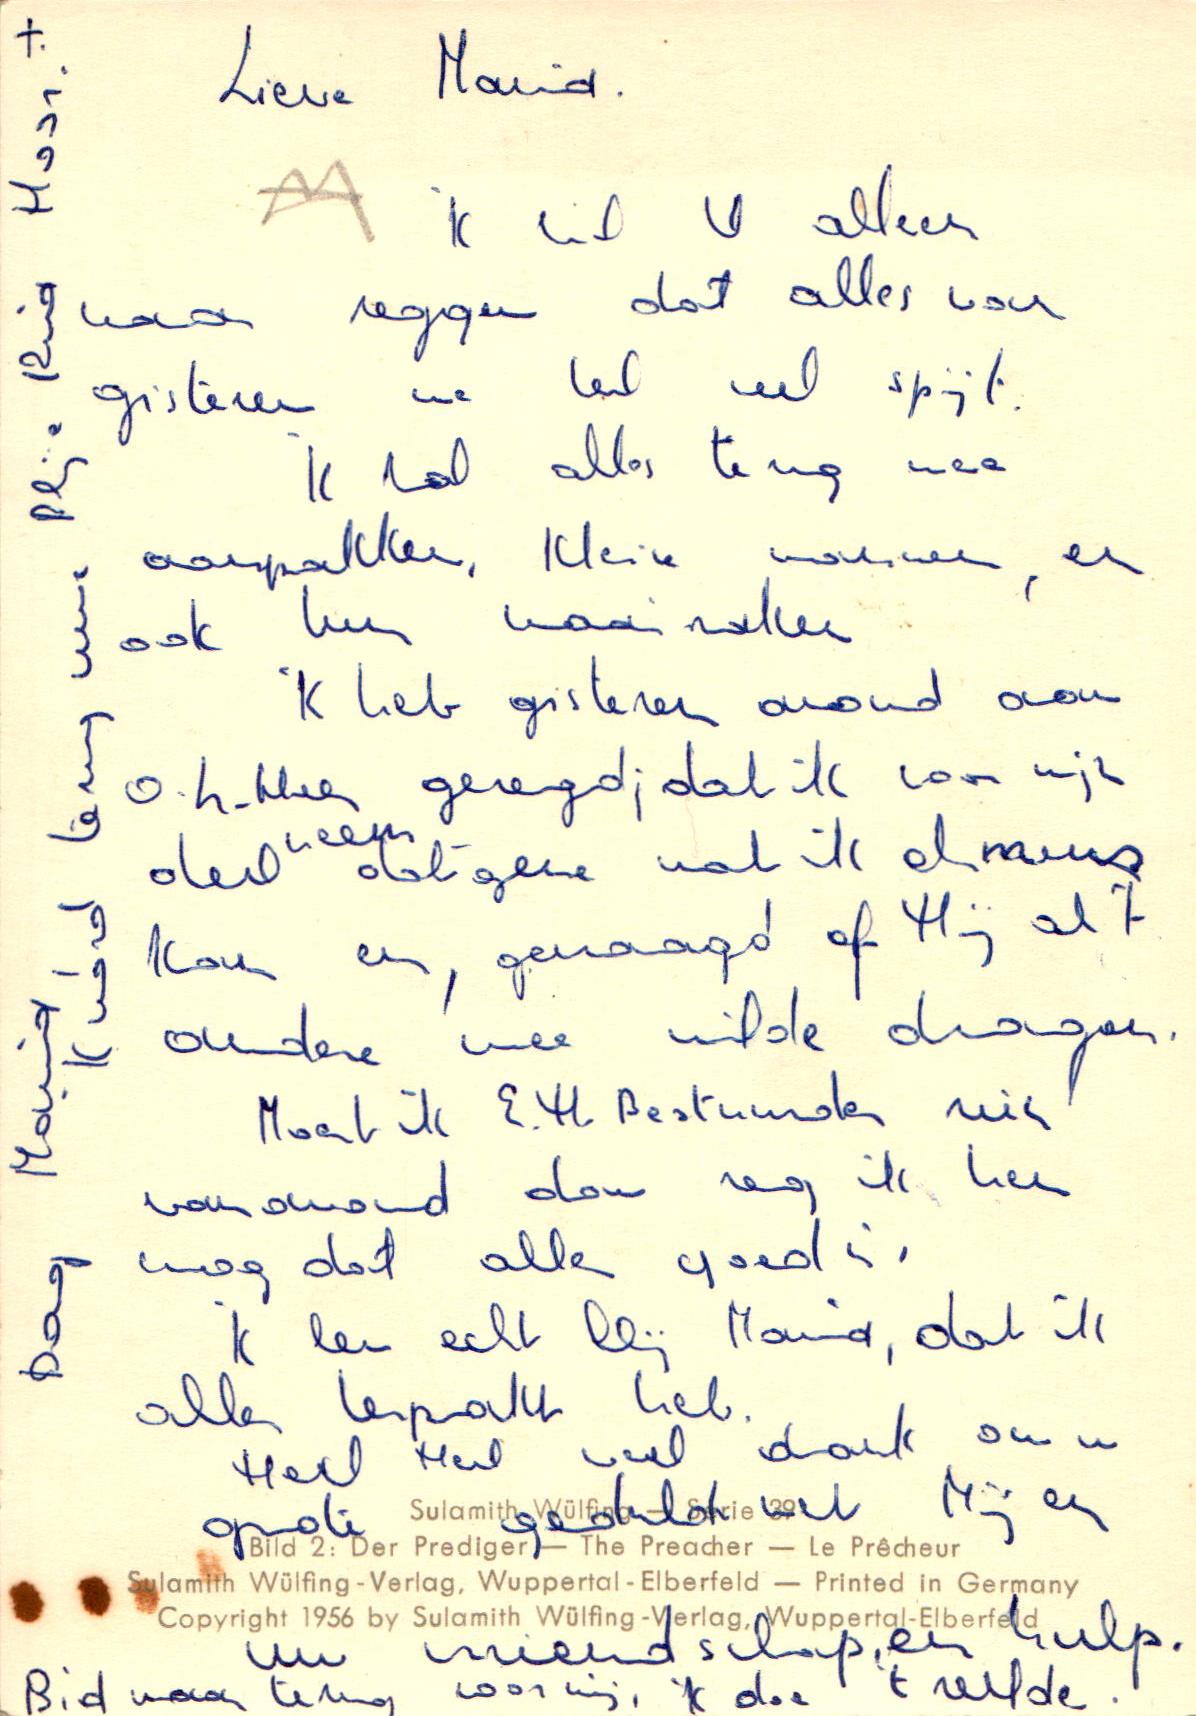 Lieve Maria.
ik wil U alleen
maar zeggen dat alles van
gisteren me heel veel spijt.
Ik zal alles terug mee
aanpakken, kleine mannen, en
ook hun
ik heb gisteren avond aan
O.L.Heer gezegd, dat ik voor mijn
deel neem datgene wat ik
kan en, gevraagd of Hij al 't
andere mee wilde dragen.
Moest ik E.H. zien
vanavond dan zeg ik hem
nog dat alles goed is.
ik ben echt blij Maria, dat ik
alles bepraat heb.
Heel Heel veel dank om uw
grote geduld met Mij en
Sulamith Wülfing — Serie 39
Bild 2: Der Prediger — The Preacher — Le Prêcheur
Sulamith Wülfing-Verlag, Wuppertal-Elberfeld — Printed in Germany
Copyright 1956 by Sulamith Wülfing-Verlag, Wuppertal-Elberfeld
uw vriendschap, en hulp.
Bid maar terug voor mij, ik doe 't zelfde.
Dag Maria
terug uw blije